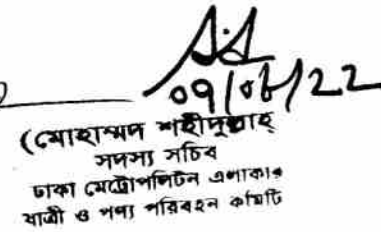 09/06/22
(মোহাম্মদ শহীদুল্লাহ্
সদস্য সচিব
ঢাকা মেট্রোপলিটন এলাকার
যাত্রী ও পণ্য পরিবহন কমিটি